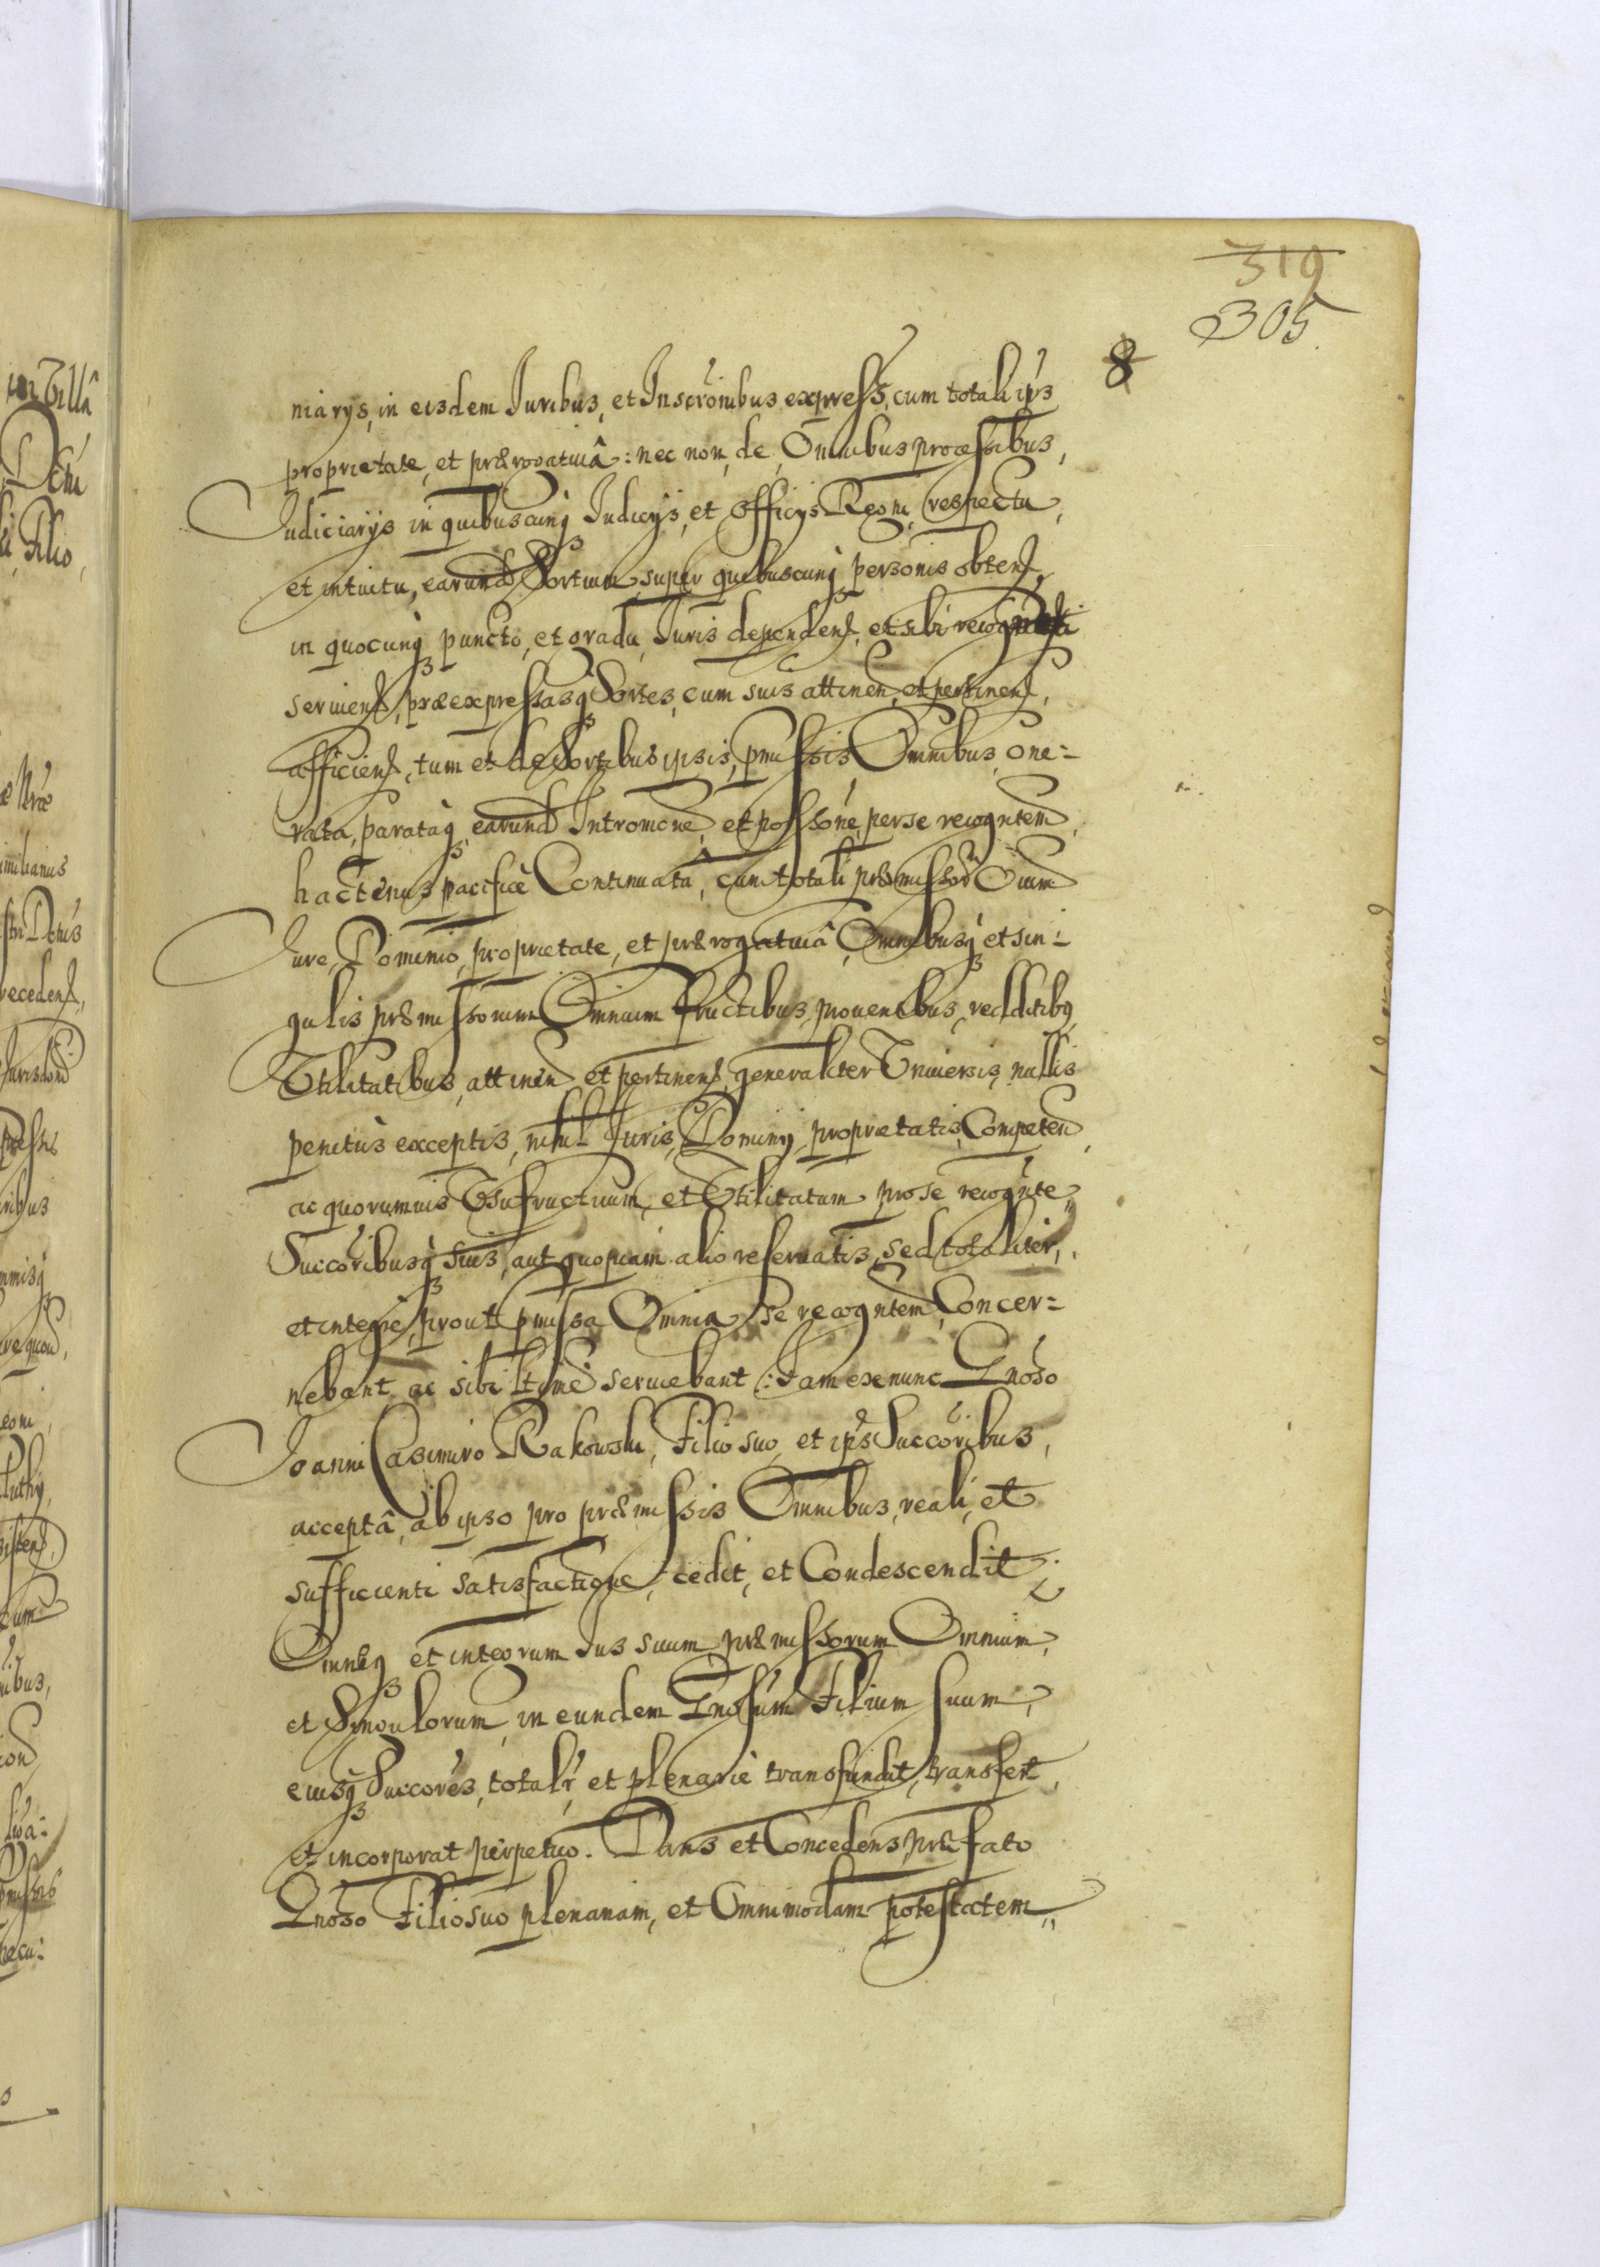 319
305
8
niarys, in eisdem Juribus, et Inscrõnibus express, cum totali ips
proprietate, et prærogatiuâ: nec non, de, Omnibus processibus,
Judiciarijs in quibuscunq Judicijs, et Officijs Regni, respectu,
et intuitu, earund Sortium, super quibuscunq personis obtent,
in quocunq puncto, et gradu, Juris dependent, et sibi
seruient, præexpressasq Sortes, cum suis attinen, et pertinent,
afficient, tum et de Sortibus ipsis, pmissis Omnibus, one=
rata, parataq, earund Intromone, et possone, per se recogntem,
hactenus pacificè Continuata, cum totali præmissor Oium
Jure, Dominio, proprietate, et prærogatiuâ, Omnibusq et sin=
gulis præmissorum Omnium fructibus, prouentibus, redditibus,
Vtilitatibus, attinen et pertinent, generaliter Vniuersis, nullis
penitùs exceptis, nihil Juris, Dominij, proprietatis, Competen,
ac quorumuis Vsufructuum, et Vtilitatum pro se recognte,
Succoribusq suis, aut quopiam alio reseruatis, sed totaliter,
et integrè, prout pmissa Omnia se recogntem, Concer=
nebant, ac sibi ltime seruiebant: Iam ex nunc Gnoso
Joanni Casimiro Rakowski, Filio suo, et ips Succoribus,
acceptâ, ab ipso pro præmissis Omnibus, reali, et
sufficienti satisfactione, cedit, et Condescendit,
Omneq et integrum Jus suum præmissorum Omnium,
et Singulorum, in eundem Gnosum Filium suum,
eiusq Succores, totalr, et plenariè transfundit, transfert,
et incorporat perpetuo. Dans et Concedens, præfato
Gnoso Filio suo plenariam, et Omnimodam potestatem